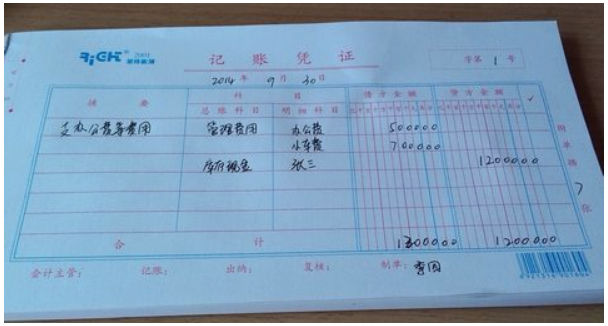 2001
记账凭证
字第 1 号
2014年 9月 30日
摘要 科目 借方金额 贷方金额 ✓
总账科目 明细科目
支办公费等费用 管理费用 办公费 500000
小车费 700000
库存现金 张三 1200000
附单据 7 张
合计 1200000
会计主管： 记账： 出纳： 复核： 制单：